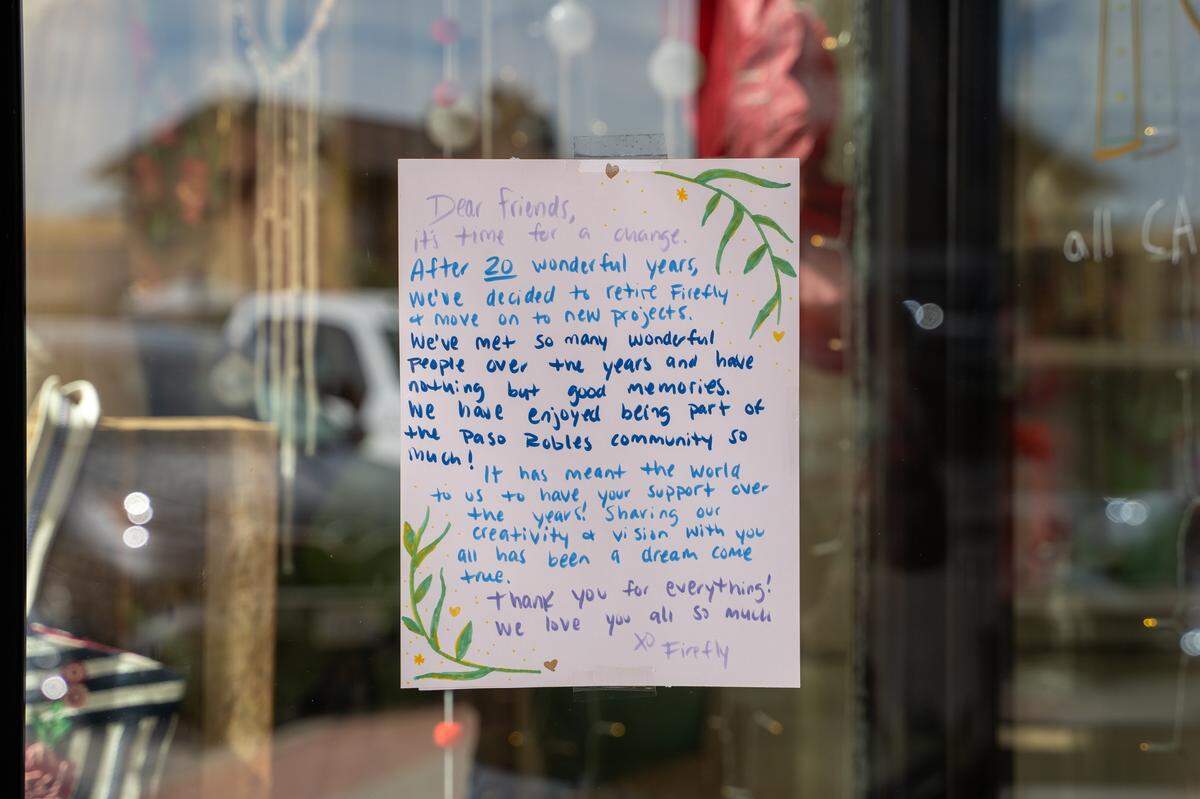 Dear friends,
it's time for a change.
After 20 wonderful years,
we've decided to retire Firefly
& move on to new projects.
We've met so many wonderful
people over the years and have
nothing but good memories.
We have enjoyed being part of
the Paso Robles community so
much!
It has meant the world
to us to have your support over
the years! Sharing our
creativity & vision with you
all has been a dream come
true.
Thank you for everything!
We love you all so much
XO Firefly
all CA